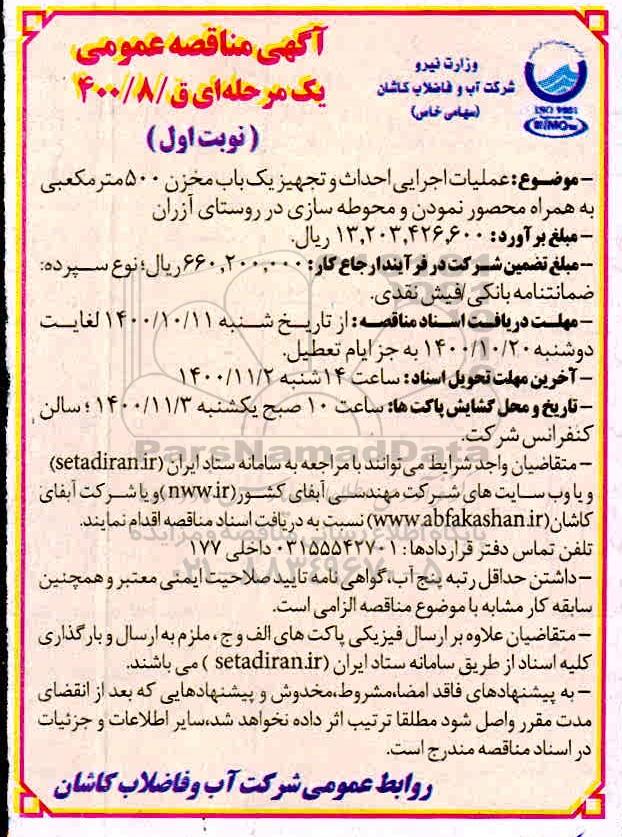 آگهی مناقصه عمومی
یک مرحله‌ای ق/۴۰۰/۸
(نوبت اول)
وزارت نیرو
شرکت آب و فاضلاب کاشان
(سهامی خاص)
ISO 9001
- موضوع: عملیات اجرایی احداث و تجهیز یک باب مخزن ۵۰۰ متر مکعبی
به همراه محصور نمودن و محوطه سازی در روستای آزران
- مبلغ برآورد: ۱۳,۲۰۳,۴۲۶,۶۰۰ ریال.
- مبلغ تضمین شرکت در فرآیند ارجاع کار: ۶۶۰,۲۰۰,۰۰۰ ریال؛ نوع سپرده:
ضمانتنامه بانکی/فیش نقدی.
- مهلت دریافت اسناد مناقصه: از تاریخ شنبه ۱۴۰۰/۱۰/۱۱ لغایت
دوشنبه ۱۴۰۰/۱۰/۲۰ به جز ایام تعطیل.
- آخرین مهلت تحویل اسناد: ساعت ۱۴ شنبه ۱۴۰۰/۱۱/۲
- تاریخ و محل گشایش پاکت ها: ساعت ۱۰ صبح یکشنبه ۱۴۰۰/۱۱/۳؛ سالن
کنفرانس شرکت.
ParsNamadData
- متقاضیان واجد شرایط می‌توانند با مراجعه به سامانه ستاد ایران (setadiran.ir)
و یا وب سایت های شرکت مهندسی آبفای کشور(nww.ir) و یا شرکت آبفای
کاشان(www.abfakashan.ir) نسبت به دریافت اسناد مناقصه اقدام نمایند.
پایگاه اطلاع رسانی مناقصه و مزایده
تلفن تماس دفتر قراردادها: ۰۳۱۵۵۵۴۲۷۰۱ داخلی ۱۷۷
- داشتن حداقل رتبه پنج آب، گواهی نامه تایید صلاحیت ایمنی معتبر و همچنین
سابقه کار مشابه با موضوع مناقصه الزامی است.
- متقاضیان علاوه بر ارسال فیزیکی پاکت های الف و ج، ملزم به ارسال و بارگذاری
کلیه اسناد از طریق سامانه ستاد ایران (setadiran.ir) می باشند.
- به پیشنهادهای فاقد امضا، مشروط، مخدوش و پیشنهادهایی که بعد از انقضای
مدت مقرر واصل شود مطلقا ترتیب اثر داده نخواهد شد، سایر اطلاعات و جزئیات
در اسناد مناقصه مندرج است.
روابط عمومی شرکت آب و فاضلاب کاشان